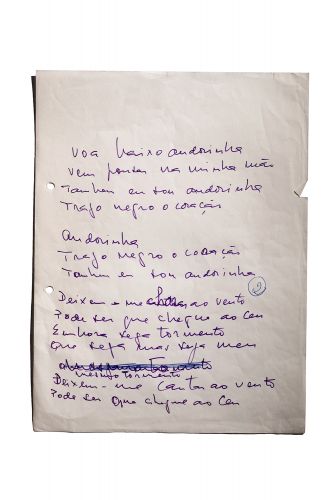 Voa baixo andorinha
Vem pousar na minha mão
Tambem eu sou andorinha
Trago negro o coração
Andorinha
Trago negro o coração
Tambem eu sou andorinha
Deixem-me ao vento
Pode ser que chegue ao Ceu
Embora seja tormento
Que seja mas seja meu
tormento
Deixem-me cantar ao vento
Pode ser que chegue ao Ceu